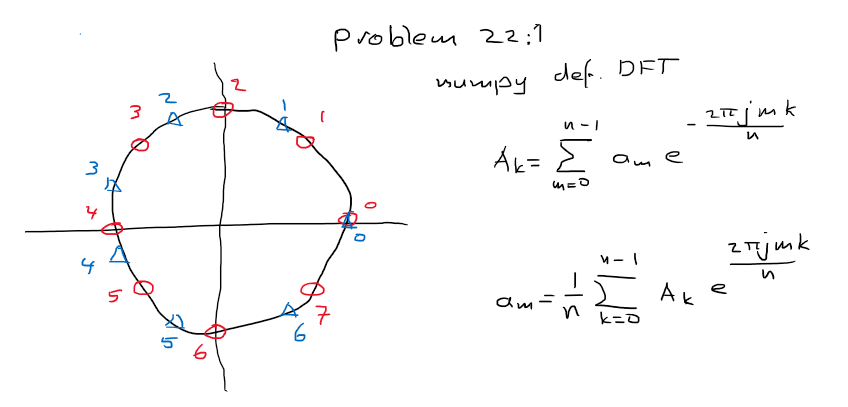 Problem 22:1
numpy def. DFT
A_k = \sum_{m=0}^{n-1} a_m e^{-\frac{2πjmk}{n}}
a_m = \frac{1}{n} \sum_{k=0}^{n-1} A_k e^{\frac{2πjmk}{n}}
2
3 2 1 1
3
4 0
0
4
5 7
5 6 6